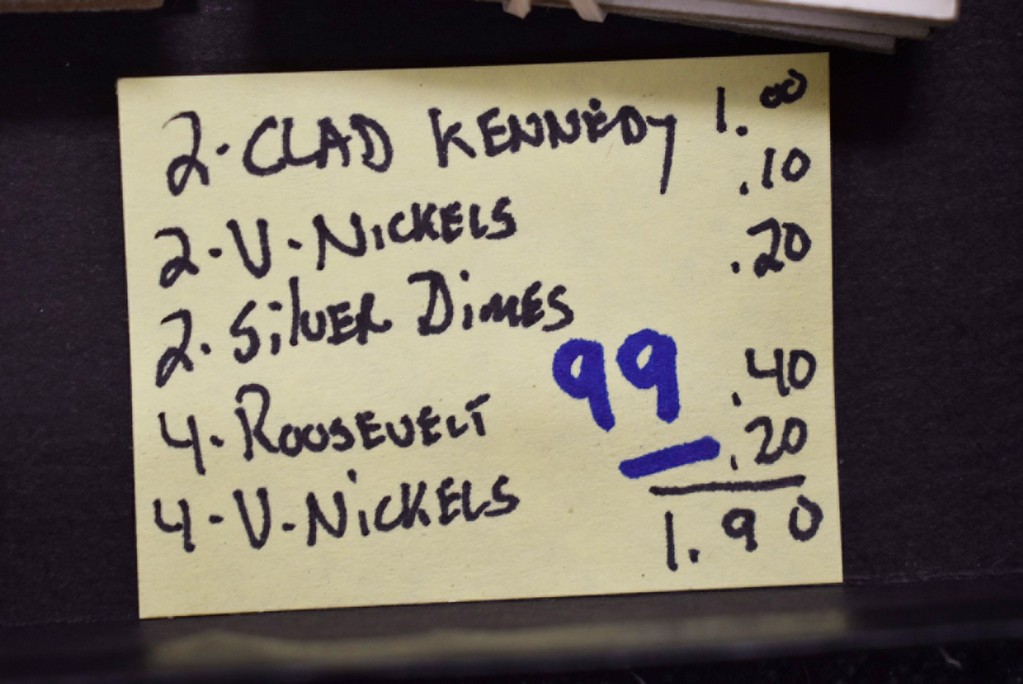 2-CLAD KENNEDY 1.00
2-V-NICKELS .10
2-SILVER DIMES .20
99
4-ROOSEVELT .40
4-V-NICKELS .20
1.90